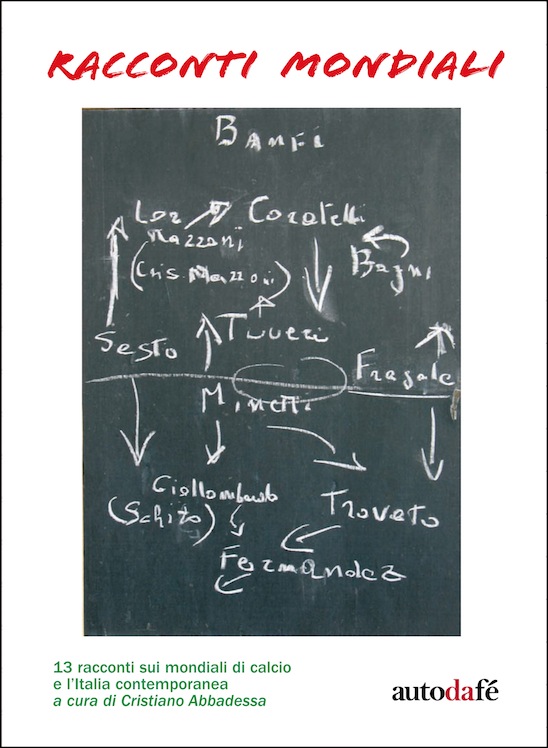 RACCONTI MONDIALI
Banfi
Lor Coratelli
Mazzoni
Bagni
(Cris. Mazzoni)
Tuveri
Sesto
Fragale
Minetti
Giallombardo
(Schito)
Trovato
Fernandez
13 racconti sui mondiali di calcio
e l'Italia contemporanea
a cura di Cristiano Abbadessa
autodafé